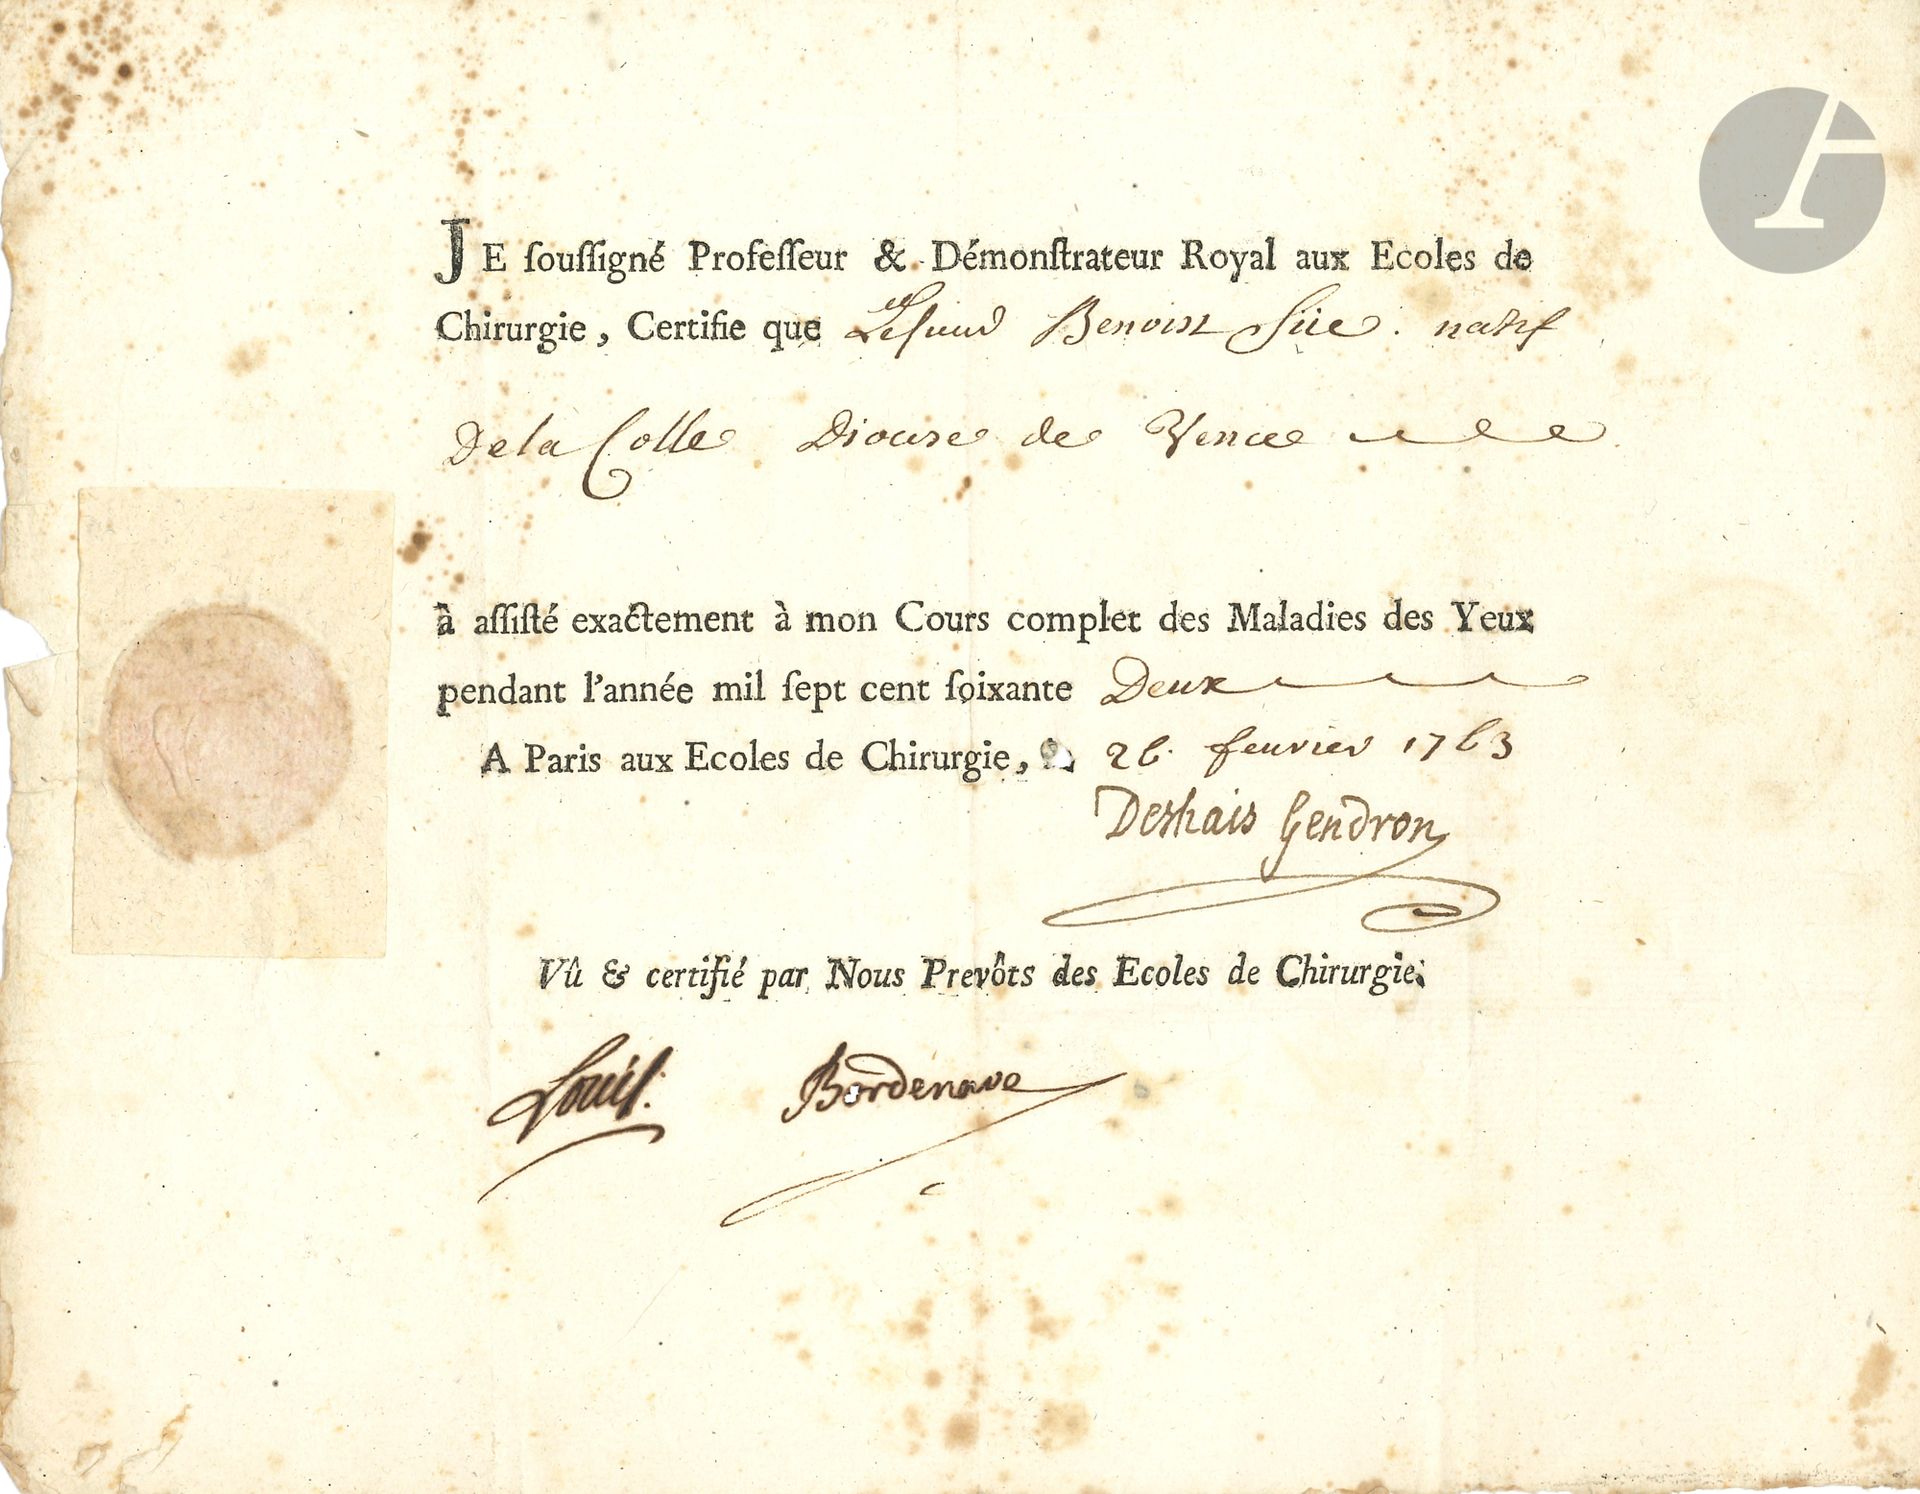 JE souſſigné Profeſſeur & Démonſtrateur Royal aux Ecoles de
Chirurgie, Certifie que Le sieur Benoist Süe. natif
De la Colle Diocese de Vence
à aſſiſté exactement à mon Cours complet des Maladies des Yeux
pendant l'année mil ſept cent ſoixante Deux
A Paris aux Ecoles de Chirurgie, 26. feurier 1763
Deshais Gendron
Vû & certifié par Nous Prevôts des Ecoles de Chirurgie.
Louis.
Bordenave